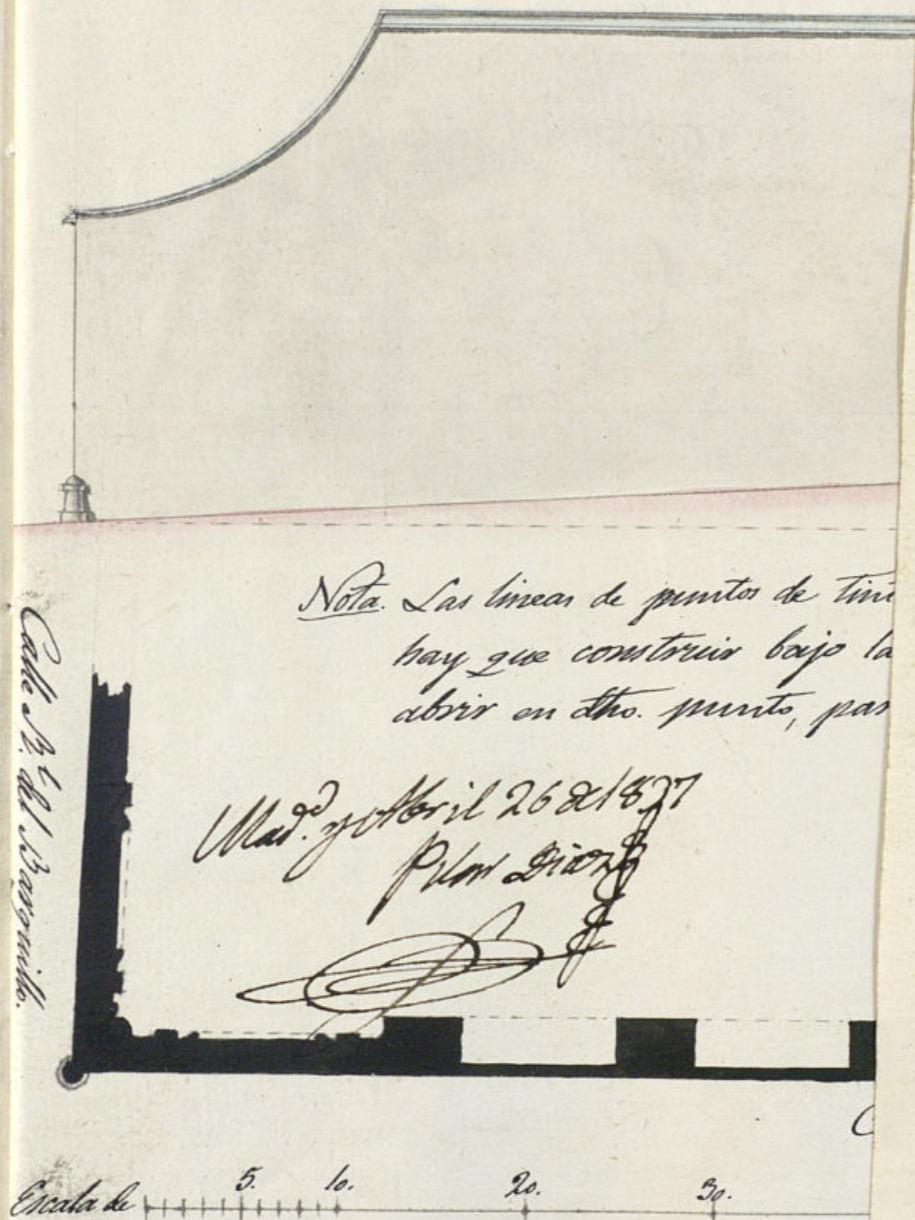 Nota. Las lineas de puntos de tin
hay que construir bajo la
abrir en dho. punto, par
Calle Rl. del Barquillo.
Mad.d y Abril 26 de 1827
Diaz
C
Escala de 5. 10. 20. 30.